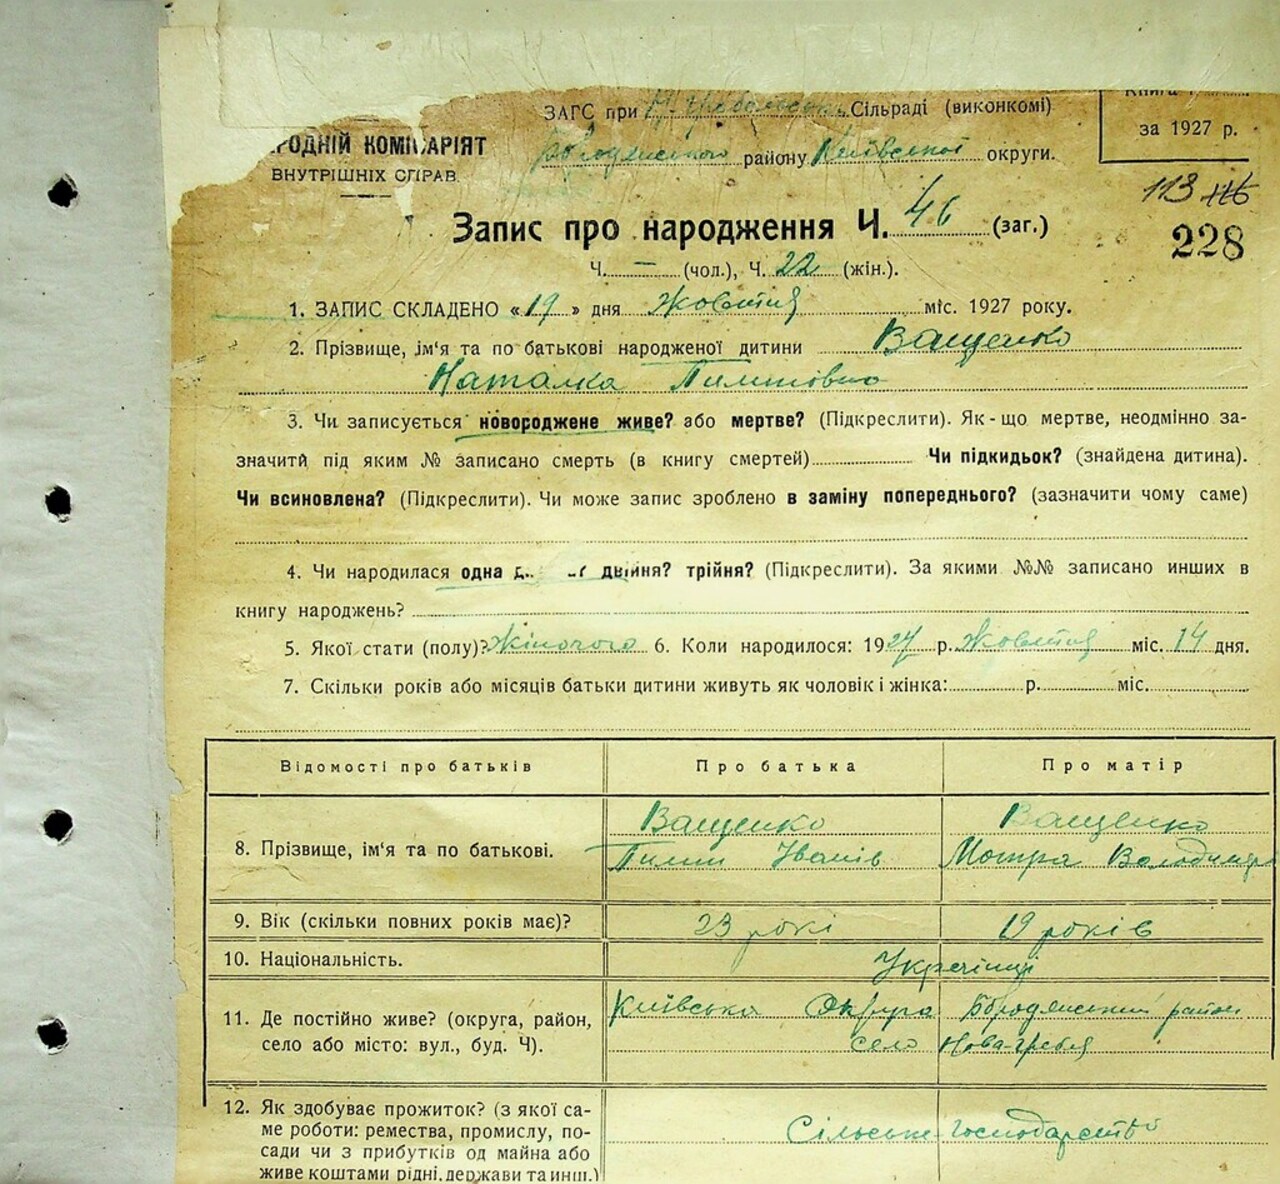 ЗАГС при Сільраді (виконкомі)
Книга
за 1927 р.
РОДНІЙ КОМІСАРІЯТ
ВНУТРІШНІХ СПРАВ.
району Київської округи.
113 116
228
Запис про народження Ч. 46 (заг.)
Ч. — (чол.), Ч. 22 (жін.).
1. ЗАПИС СКЛАДЕНО «19» дня Жовтня міс. 1927 року.
2. Прізвище, ім'я та по батькові народженої дитини Ващенко
Наталка Пилипівна
3. Чи записується новороджене живе? або мертве? (Підкреслити). Як-що мертве, неодмінно за-
значити під яким № записано смерть (в книгу смертей) Чи підкидьок? (знайдена дитина).
Чи всиновлена? (Підкреслити). Чи може запис зроблено в заміну попереднього? (зазначити чому саме)
4. Чи народилася одна д. двійня? трійня? (Підкреслити). За якими №№ записано инших в
книгу народжень?
5. Якої стати (полу)? Жіночого 6. Коли народилося: 1927 р. Жовтня міс. 14 дня.
7. Скільки років або місяців батьки дитини живуть як чоловік і жінка: р. міс.
Відомості про батьків Про батька Про матір
8. Прізвище, ім'я та по батькові. Ващенко Ващенко
Пилип Іванів Мотря Володимир
9. Вік (скільки повних років має)? 23 рокі 19 років
10. Національність. Українці
11. Де постійно живе? (округа, район, Київська Округа Бородянський район
село або місто: вул., буд. Ч). село Нова-Гребля
12. Як здобуває прожиток? (з якої са-
ме роботи: ремества, промислу, по- Сільське-господарство
сади чи з прибутків од майна або
живе коштами рідні, держави та инш.)